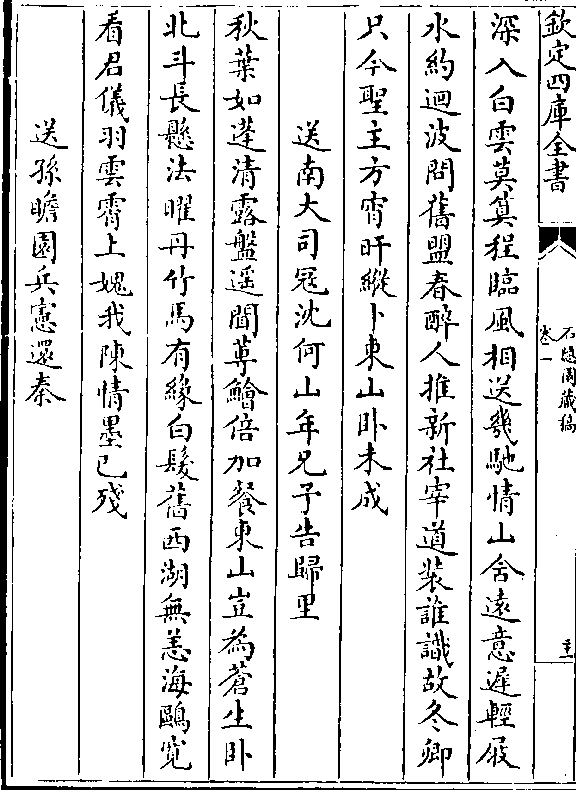 欽定四庫全書
石隱園藏稿
卷一
深入白雲莫算程臨風相送幾馳情山含遠意遲輕屐
水約迴波問舊盟春醉人推新社宰道裝誰識故冬卿
只今聖主方宵旰縱卜東山臥未成
送南大司寇沈何山年兄予告歸里
秋葉如蓬清露盤遥聞蓴鱠倍加餐東山豈為蒼生卧
北斗長懸法曜丹竹馬有緣白髮舊西湖無恙海鷗寛
看君儀羽雲霄上媿我陳情墨已殘
送孫瞻園兵憲還秦